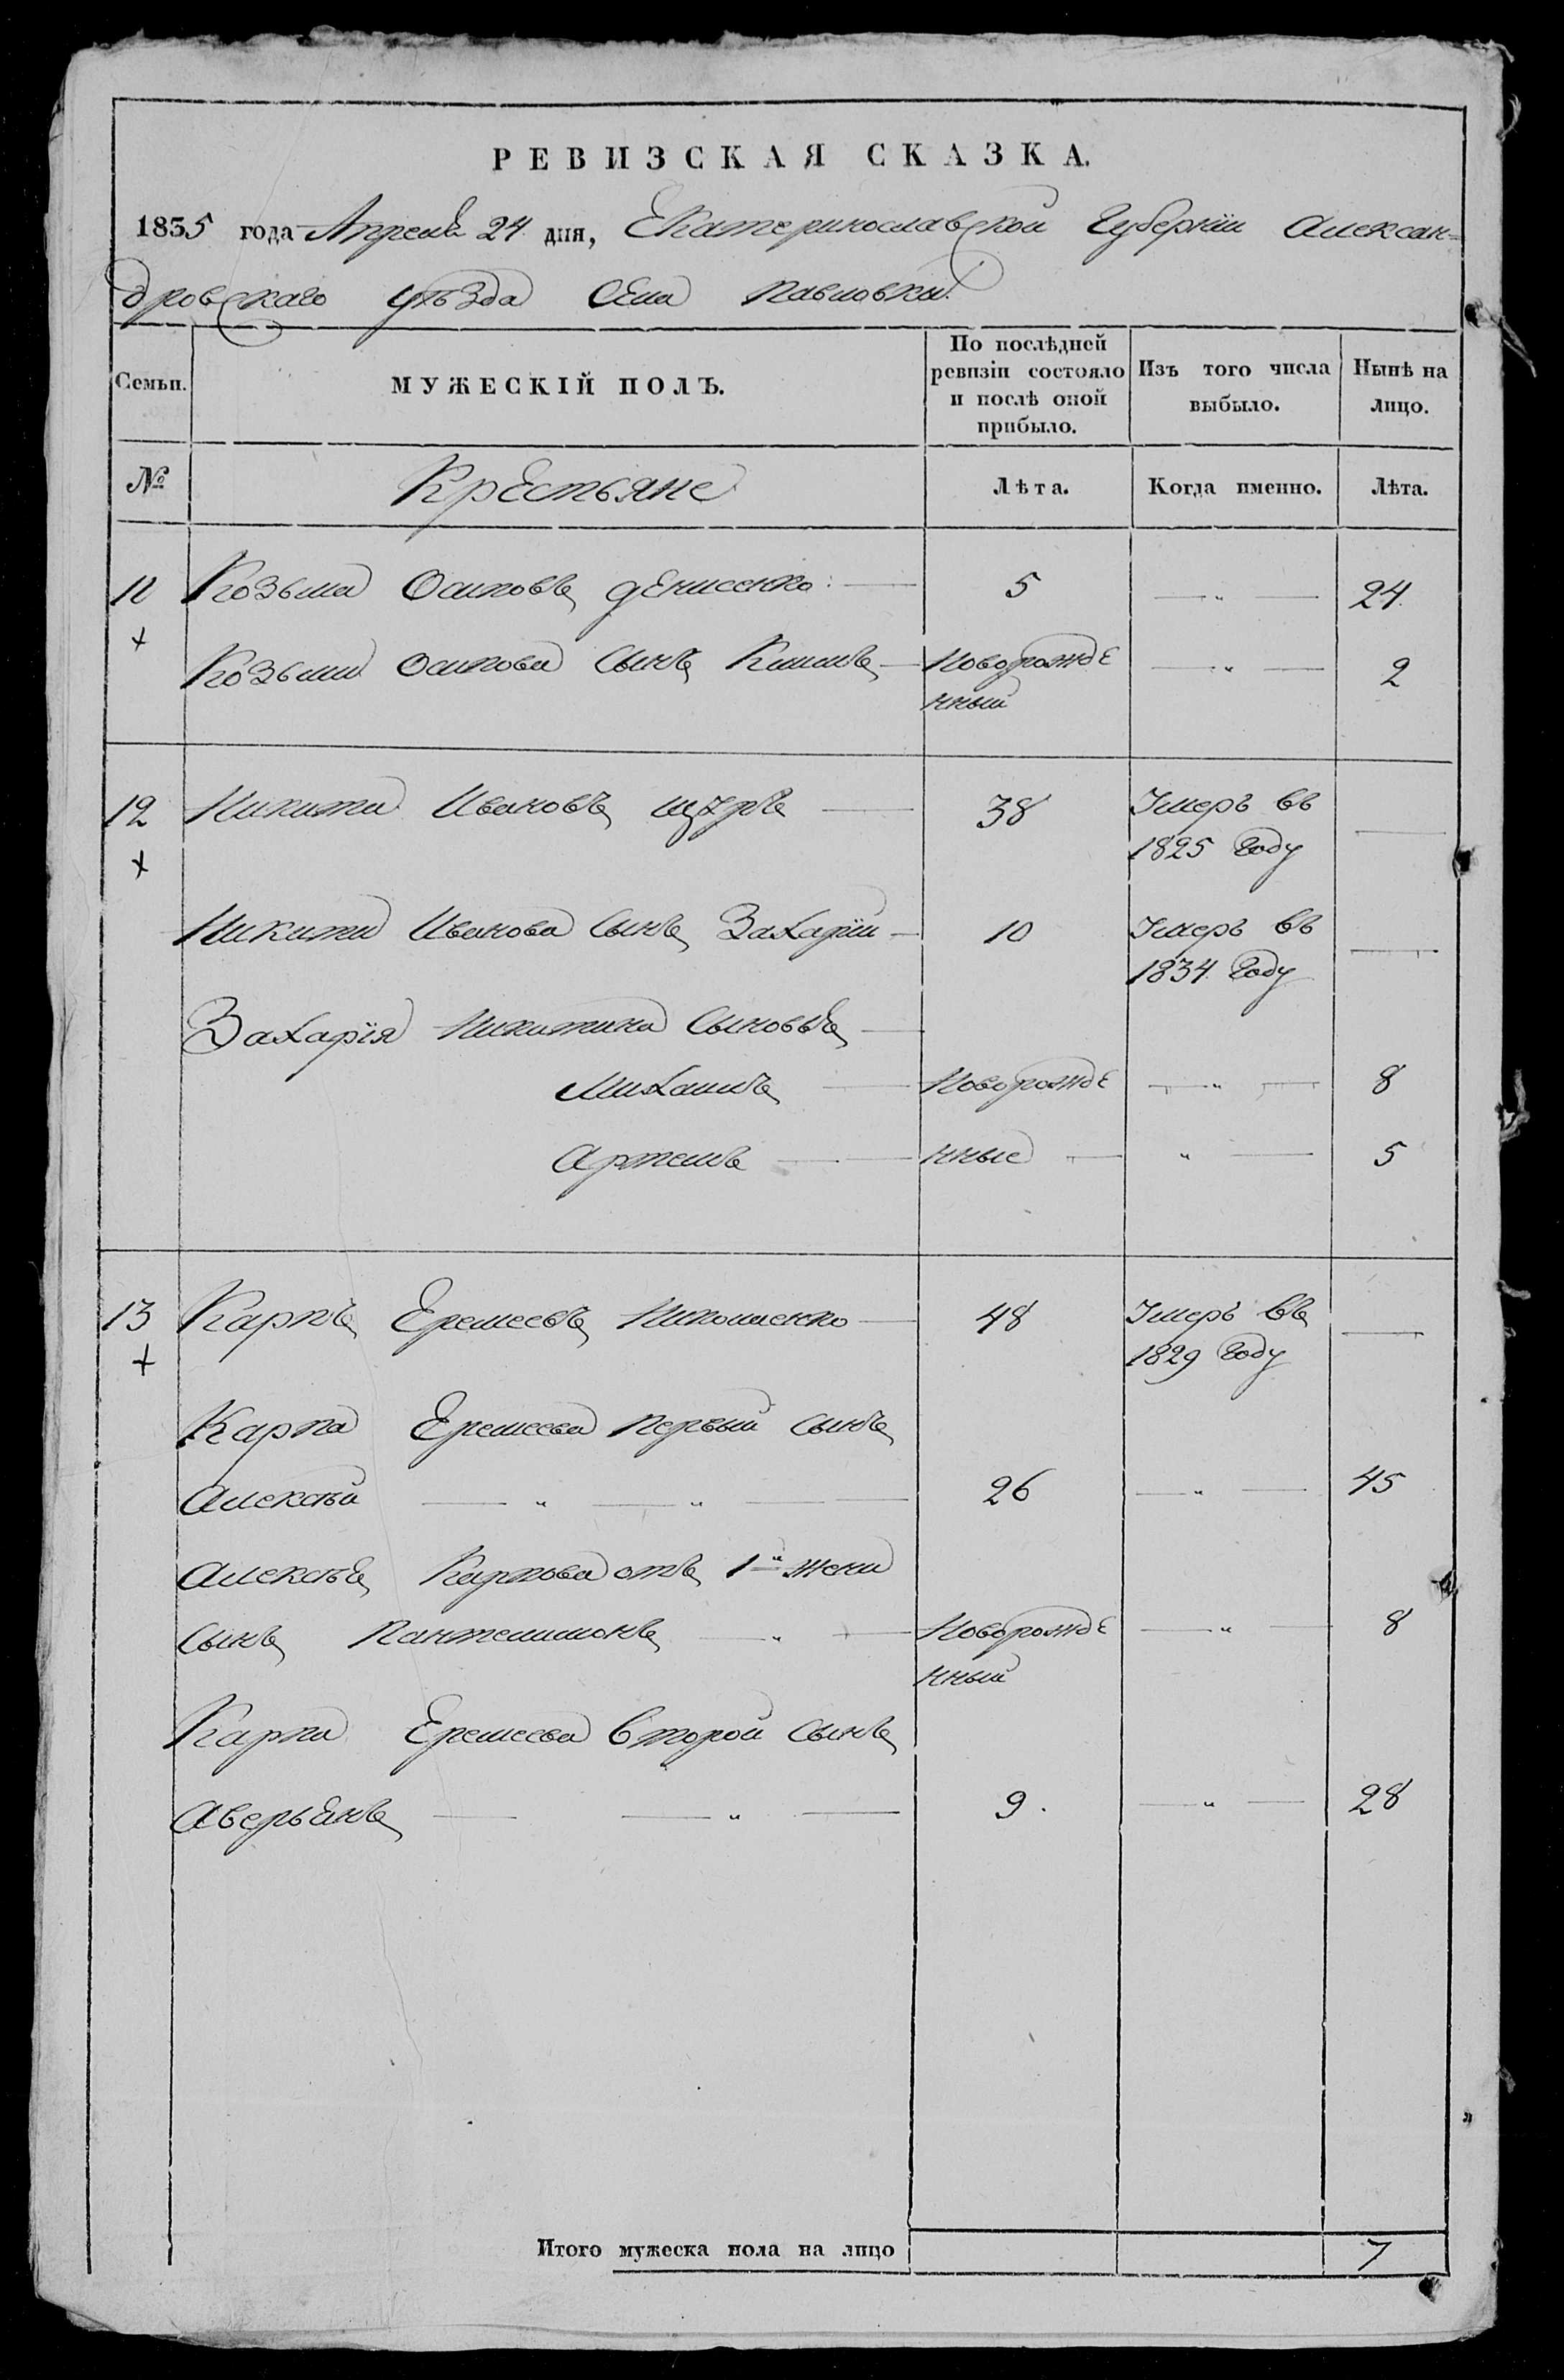 РЕВИЗСКАЯ СКАЗКА.
1835 года Апреля 24 дня, Екатеринославской Губернiи Алексан=
дровскаго уѣзда Села Павловки.
Семьи. МУЖЕСКIЙ ПОЛЪ. По послѣдней ревизiи состояло и послѣ оной прибыло. Изъ того числа выбыло. Нынѣ на лицо.
№ Крестьяне Лѣта. Когда именно. Лѣта.
11 Козьма Осиповъ Денисенко 5 — " — 24
Козьмы Осипова Сынъ Климъ Новорожде — " — 2
нный
12 Никита Ивановъ Щуръ 38 Умеръ въ —
1825 Году
Никиты Иванова Сынъ Захарiй 10 Умеръ въ —
1834 Году
Захарiя Никитина Сыновья
Михаилъ Новорожде — " — 8
Артемъ нные — " — 5
13 Карпъ Еремеевъ 48 Умеръ въ —
1829 Году
Карпа Еремеева первый сынъ
Алексѣй — " — " — 26 — " — 45
Алексѣя Карпова отъ 1й жены
Сынъ Пантелимонъ — " — Новорожде — " — 8
нный
Карпа Еремеева второй Сынъ
Аверьянъ — — " — 9 — " — 28
Итого мужеска пола на лицо 7